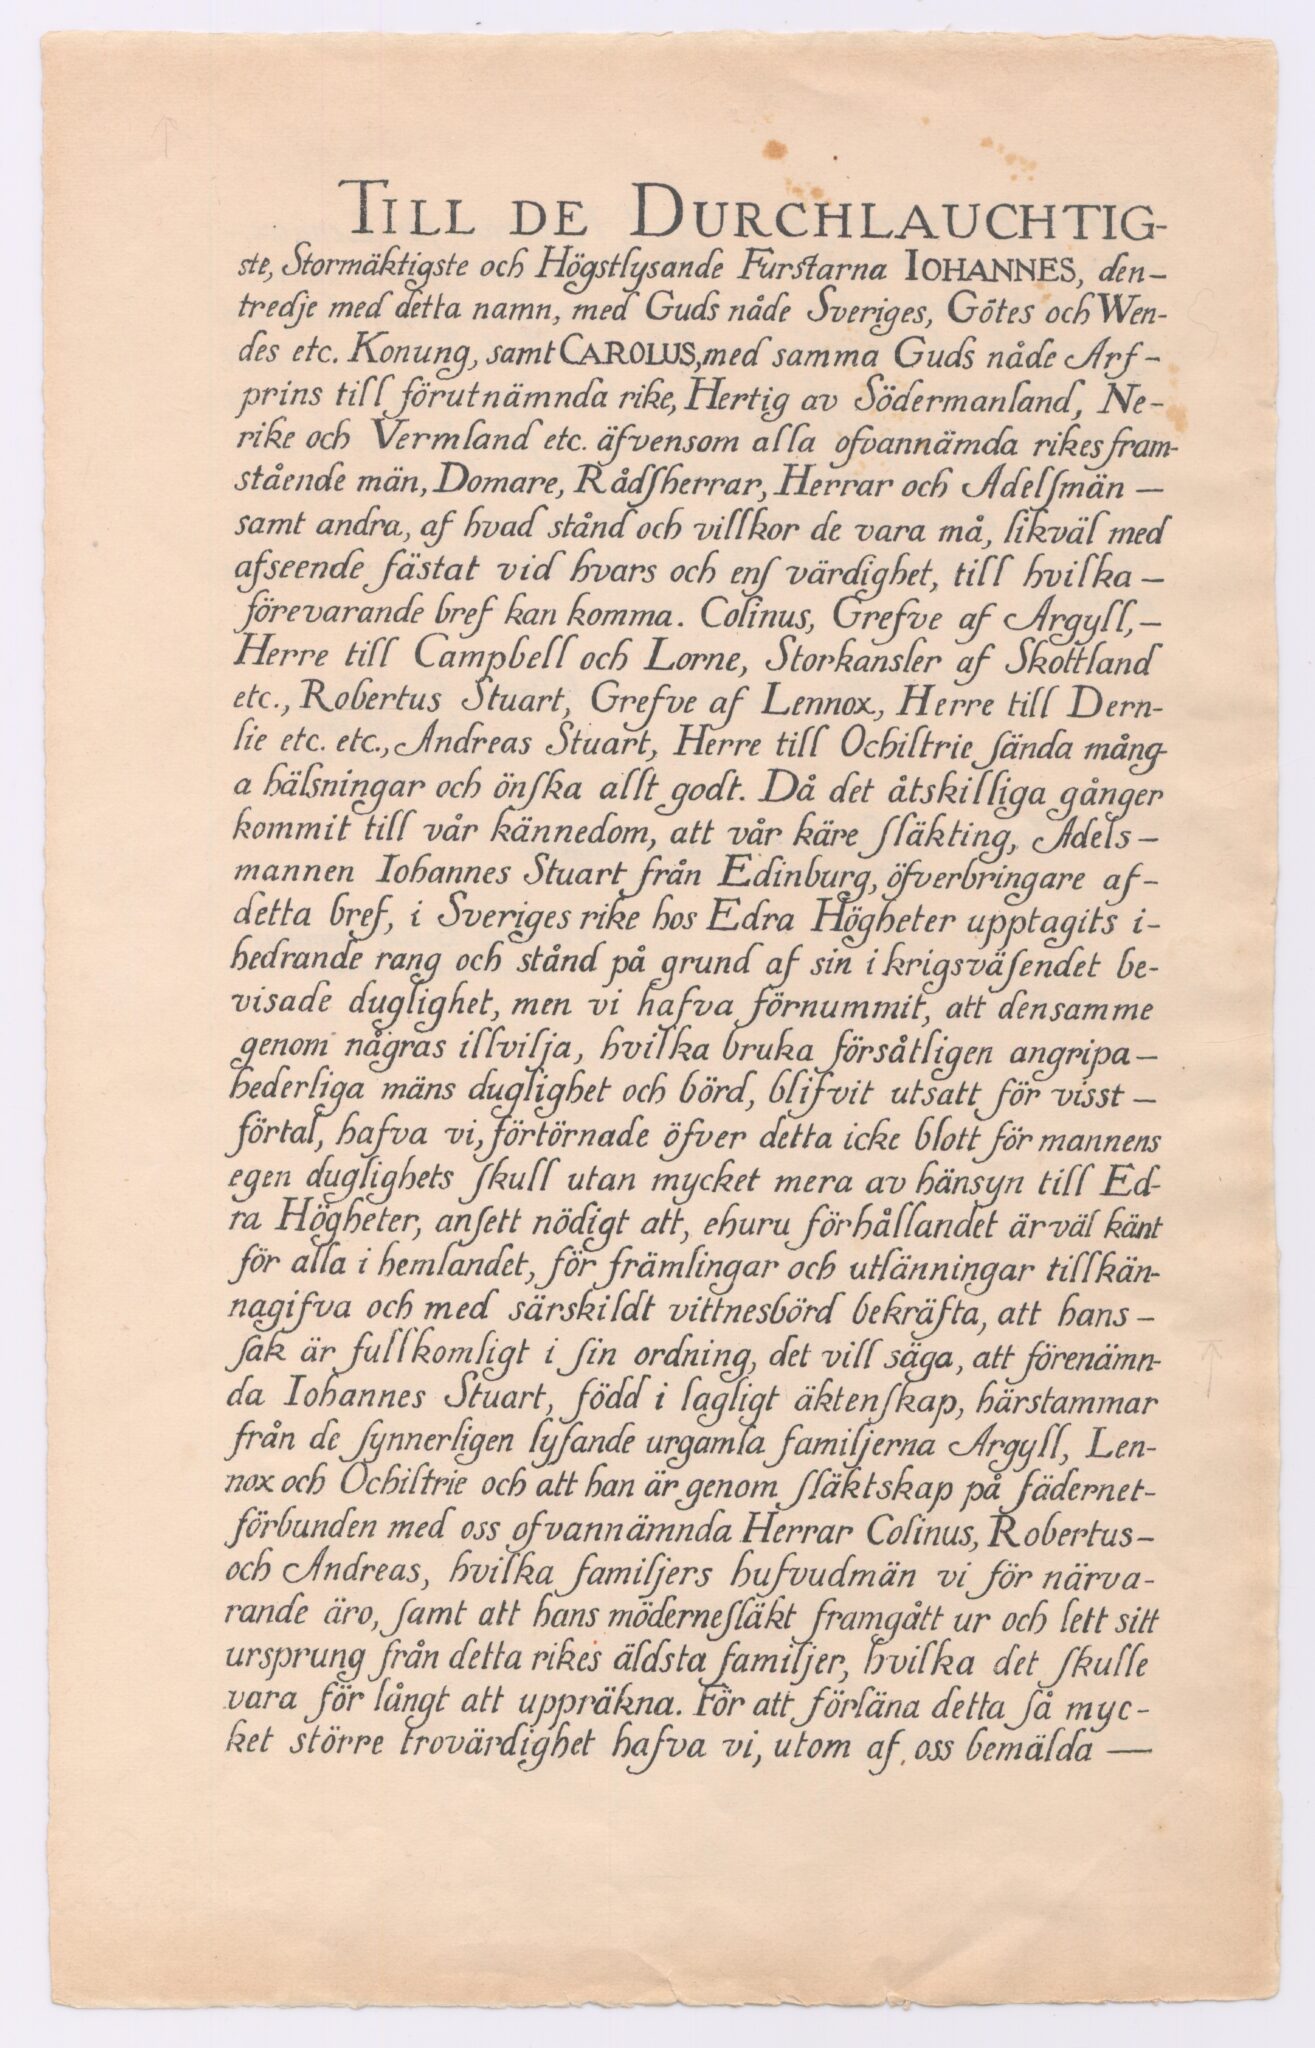 TILL DE DURCHLAUCHTIG-
ste, Stormäktigste och Högstlysande Furstarna IOHANNES, den-
tredje med detta namn, med Guds nåde Sveriges, Götes och Wen-
des etc. Konung, samt CAROLUS, med samma Guds nåde Arf-
prins till förutnämnda rike, Hertig av Södermanland, Ne-
rike och Vermland etc. äfvensom alla ofvannämda rikes fram-
stående män, Domare, Rådſherrar, Herrar och Adelſmän —
samt andra, af hvad stånd och villkor de vara må, likväl med
afseende fästat vid hvars och enſ värdighet, till hvilka —
förevarande bref kan komma. Colinus, Grefve af Argyll, —
Herre till Campbell och Lorne, Storkansler af Skottland
etc., Robertus Stuart, Grefve af Lennox, Herre till Dern-
lie etc. etc., Andreas Stuart, Herre till Ochiltrie ſända mång-
a hälsningar och önſka allt godt. Då det åtskilliga gånger
kommit till vår kännedom, att vår käre ſläkting, Adels —
mannen Iohannes Stuart från Edinburg, öfverbringare af-
detta bref, i Sveriges rike hos Edra Högheter upptagits i-
hedrande rang och stånd på grund af sin i krigsväſendet be-
visade duglighet, men vi hafva förnummit, att densamme
genom någras illvilja, hvilka bruka försåtligen angripa —
hederliga mäns duglighet och börd, blifvit utsatt för visst —
förtal, hafva vi, förtörnade öfver detta icke blott för mannens
egen duglighets ſkull utan mycket mera av hänsyn till Ed-
ra Högheter, anſett nödigt att, ehuru förhållandet är väl känt
för alla i hemlandet, för främlingar och utlänningar tillkän-
nagifva och med särskildt vittnesbörd bekräfta, att hans —
ſak är fullkomligt i ſin ordning, det vill säga, att förenämn-
da Iohannes Stuart, född i lagligt äktenſkap, härstammar
från de ſynnerligen lyſande urgamla familjerna Argyll, Len-
nox och Ochiltrie och att han är genom ſläktskap på fädernet-
förbunden med oss ofvannämnda Herrar Colinus, Robertus —
och Andreas, hvilka familjers hufvudmän vi för närva-
rande äro, ſamt att hans möderneſläkt framgått ur och lett sitt
ursprung från detta rikes äldsta familjer, hvilka det ſkulle
vara för långt att uppräkna. För att förläna detta ſå myc-
ket större trovärdighet hafva vi, utom af oss bemälda —